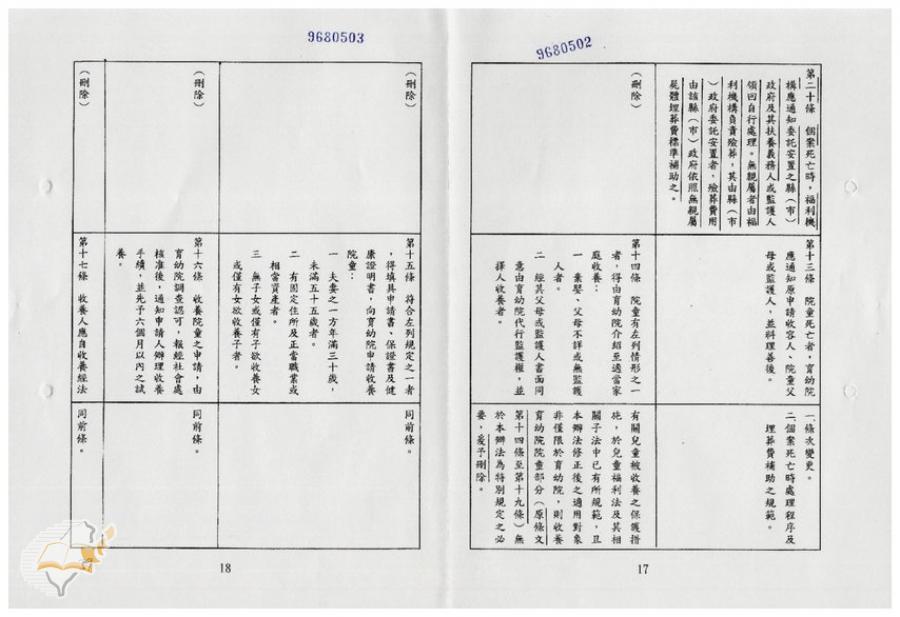 9680502
第二十條　個案死亡時，福利機
構應通知委託安置之縣（市）
政府及其扶養義務人或監護人
領回自行處理。無親屬者由福
利機構負責殮葬，其由縣（市
）政府委託安置者，殮葬費用
由該縣（市）政府依照無親屬
屍體埋葬費標準補助之。
第十三條　院童死亡者，育幼院
應通知原申請收容人、院童父
母或監護人，並料理善後。
一、條次變更。
二、個案死亡時處理程序及
埋葬費補助之規範。
（刪除）
第十四條　院童有左列情形之一
者，得由育幼院介紹至適當家
庭收養：
一　棄嬰、父母不詳或無監護
人者。
二　經其父母或監護人書面同
意由育幼院代行監護權，並
擇人收養者。
有關兒童被收養之保護措
施，於兒童福利法及其相
關子法中已有所規範，且
本辦法修正後之適用對象
非僅限於育幼院，則收養
育幼院院童部分（原條文
第十四條至第十九條）無
於本辦法為特別規定之必
要，爰予刪除。
17
9680503
（刪除）
第十五條　符合左列規定之一者
，得填具申請書、保證書及健
康證明書，向育幼院申請收養
院童：
一　夫妻之一方年滿三十歲，
未滿五十五歲者。
二　有固定住所及正當職業或
相當資產者。
三　無子女或僅有子欲收養女
或僅有女欲收養子者。
同前條。
（刪除）
第十六條　收養院童之申請，由
育幼院調查認可，報經社會處
核准後，通知申請人辦理收養
手續，並先予六個月以內之試
養。
同前條。
（刪除）
第十七條　收養人應自收養經法
同前條。
18